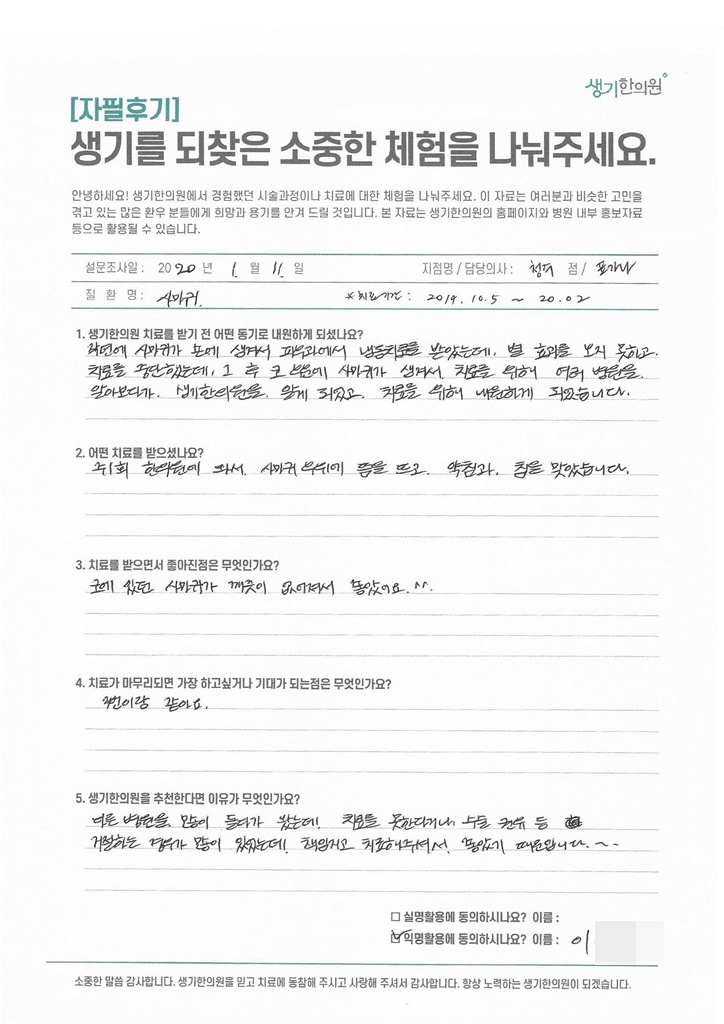 생기한의원
[자필후기]
생기를 되찾은 소중한 체험을 나눠주세요.
안녕하세요! 생기한의원에서 경험했던 시술과정이나 치료에 대한 체험을 나눠주세요. 이 자료는 여러분과 비슷한 고민을
겪고 있는 많은 환우 분들에게 희망과 용기를 안겨 드릴 것입니다. 본 자료는 생기한의원의 홈페이지와 병원 내부 홍보자료
등으로 활용될 수 있습니다.
설문조사일 : 2020 년 1 월 11 일 지점명 / 담당의사 : 청주 점 /
질 환 명 : 사마귀 *치료기간 : 2019. 10. 5 ~ 20. 02
1. 생기한의원 치료를 받기 전 어떤 동기로 내원하게 되셨나요?
작년에 사마귀가 손에 생겨서 피부과에서 냉동치료를 받았는데, 별 효과를 보지 못하고.
치료를 중단했는데, 그 후 코 부위에 사마귀가 생겨서 치료를 위해 여러 병원을
알아보다가. 생기한의원을 알게 되었고. 치료를 위해 내원하게 되었습니다.
2. 어떤 치료를 받으셨나요?
주1회 한의원에 와서 사마귀 부위에 뜸을 뜨고. 약침과. 침을 맞았습니다.
3. 치료를 받으면서 좋아진점은 무엇인가요?
코에 있던 사마귀가 깨끗이 없어져서 좋았어요. ^^.
4. 치료가 마무리되면 가장 하고싶거나 기대가 되는점은 무엇인가요?
3번이랑 같아요.
5. 생기한의원을 추천한다면 이유가 무엇인가요?
다른 병원을 많이 돌다가 왔는데! 치료를 못한다거나, 수술 권유 등
거절하는 경우가 많이 있었는데! 책임지고 치료해주셔서. 좋았기 때문입니다. ~~
□ 실명활용에 동의하시나요? 이름 :
☑ 익명활용에 동의하시나요? 이름 : 이
소중한 말씀 감사합니다. 생기한의원을 믿고 치료에 동참해 주시고 사랑해 주셔서 감사합니다. 항상 노력하는 생기한의원이 되겠습니다.